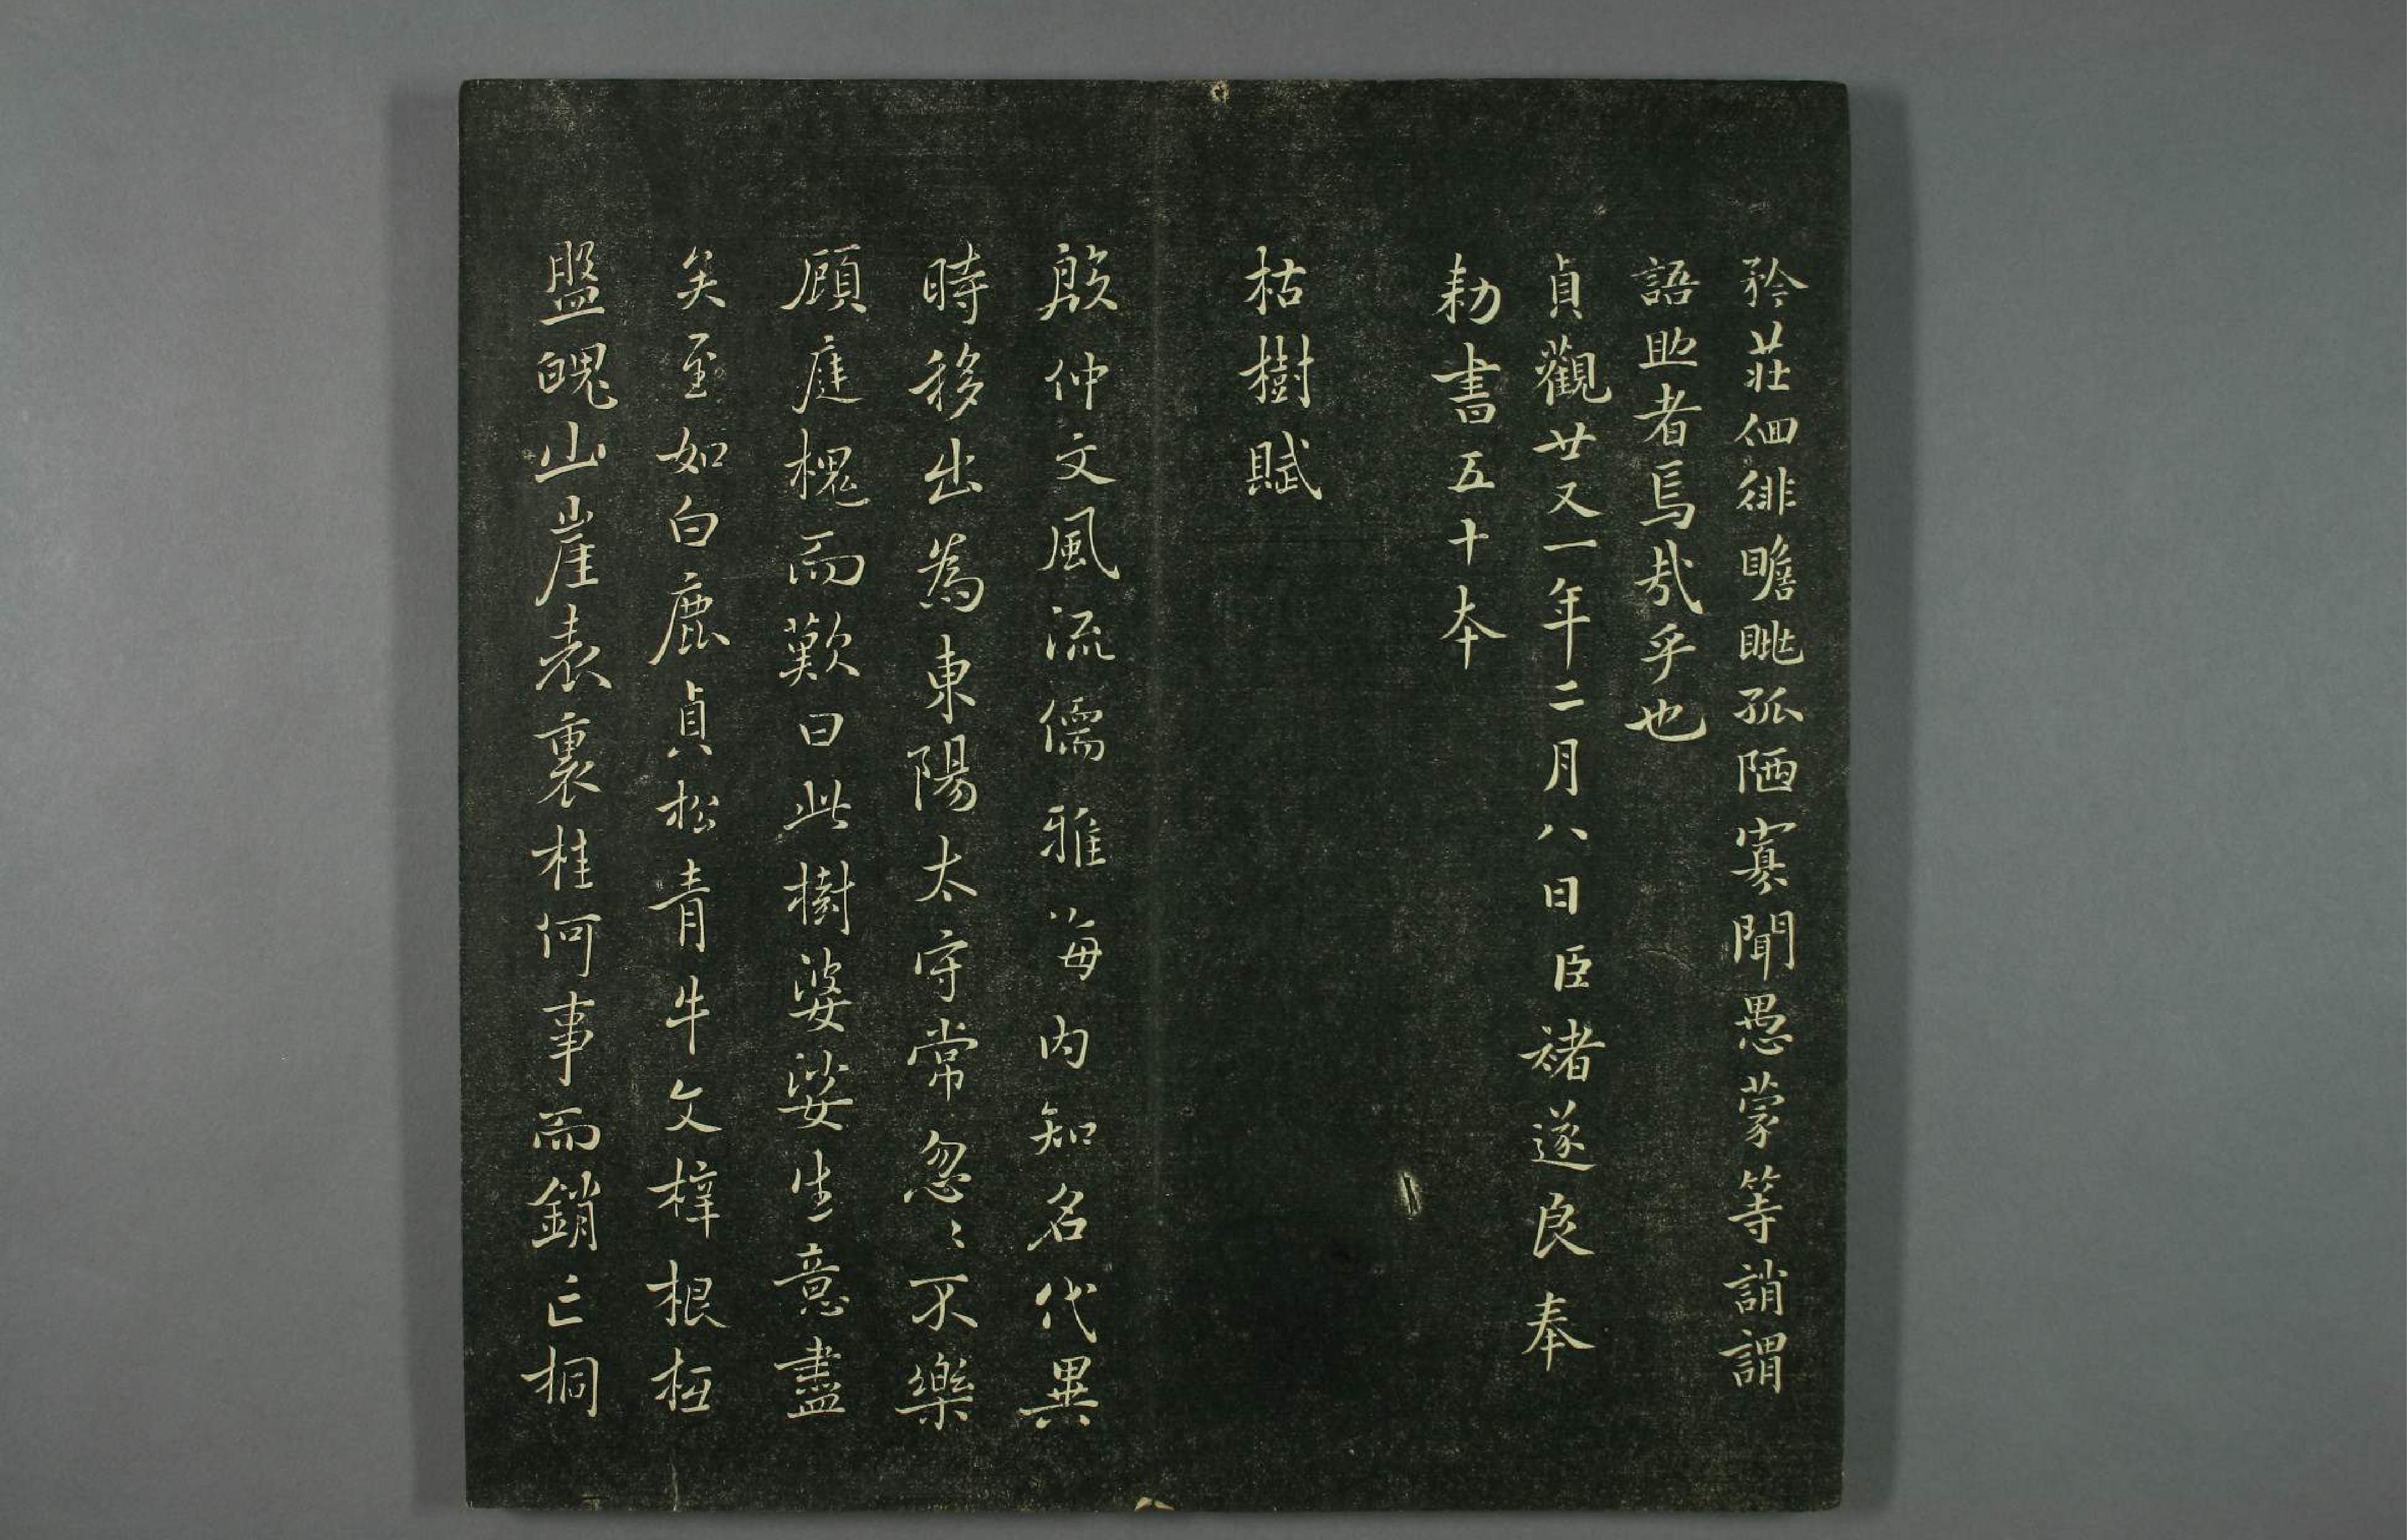 矜莊佪徘瞻眺孤陋寡聞愚蒙等誚謂
語助者焉哉乎也
貞觀廿又一年二月八日臣褚遂良奉
勑書五十本
枯樹賦
殷仲文風流儒雅海內知名代異
時移出為東陽太守常忽〻不樂
顧庭槐而歎曰此樹婆娑生意盡
矣至如白鹿貞松青牛文梓根柢
盤魄山崖表裏桂何事而銷亡桐